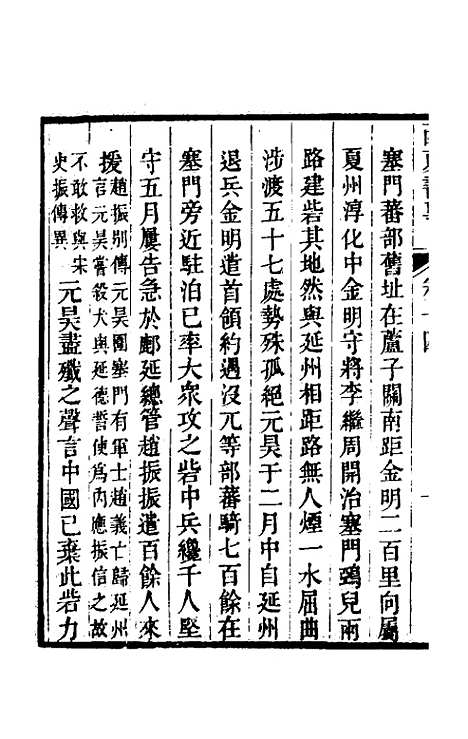 塞門蕃部舊址在蘆子關南距金明二百里向屬
夏州淳化中金明守將李繼周開治塞門鵶兒兩
路建砦其地然與延州相距路無人煙一水屈曲
涉渡五十七處勢殊孤絕元昊于二月中自延州
退兵金明遣首領約遇沒兀等部蕃騎七百餘在
塞門旁近駐泊已率大衆攻之砦中兵纔千人堅
守五月屢告急於鄜延總管趙振振遣百餘人來
援趙振別傳元昊圍塞門有軍士趙義亡歸延州
言元昊嘗殺犬與延德誓使爲內應振信之故
不敢救與宋
史振傳異
元昊盡殲之聲言中國已棄此砦力